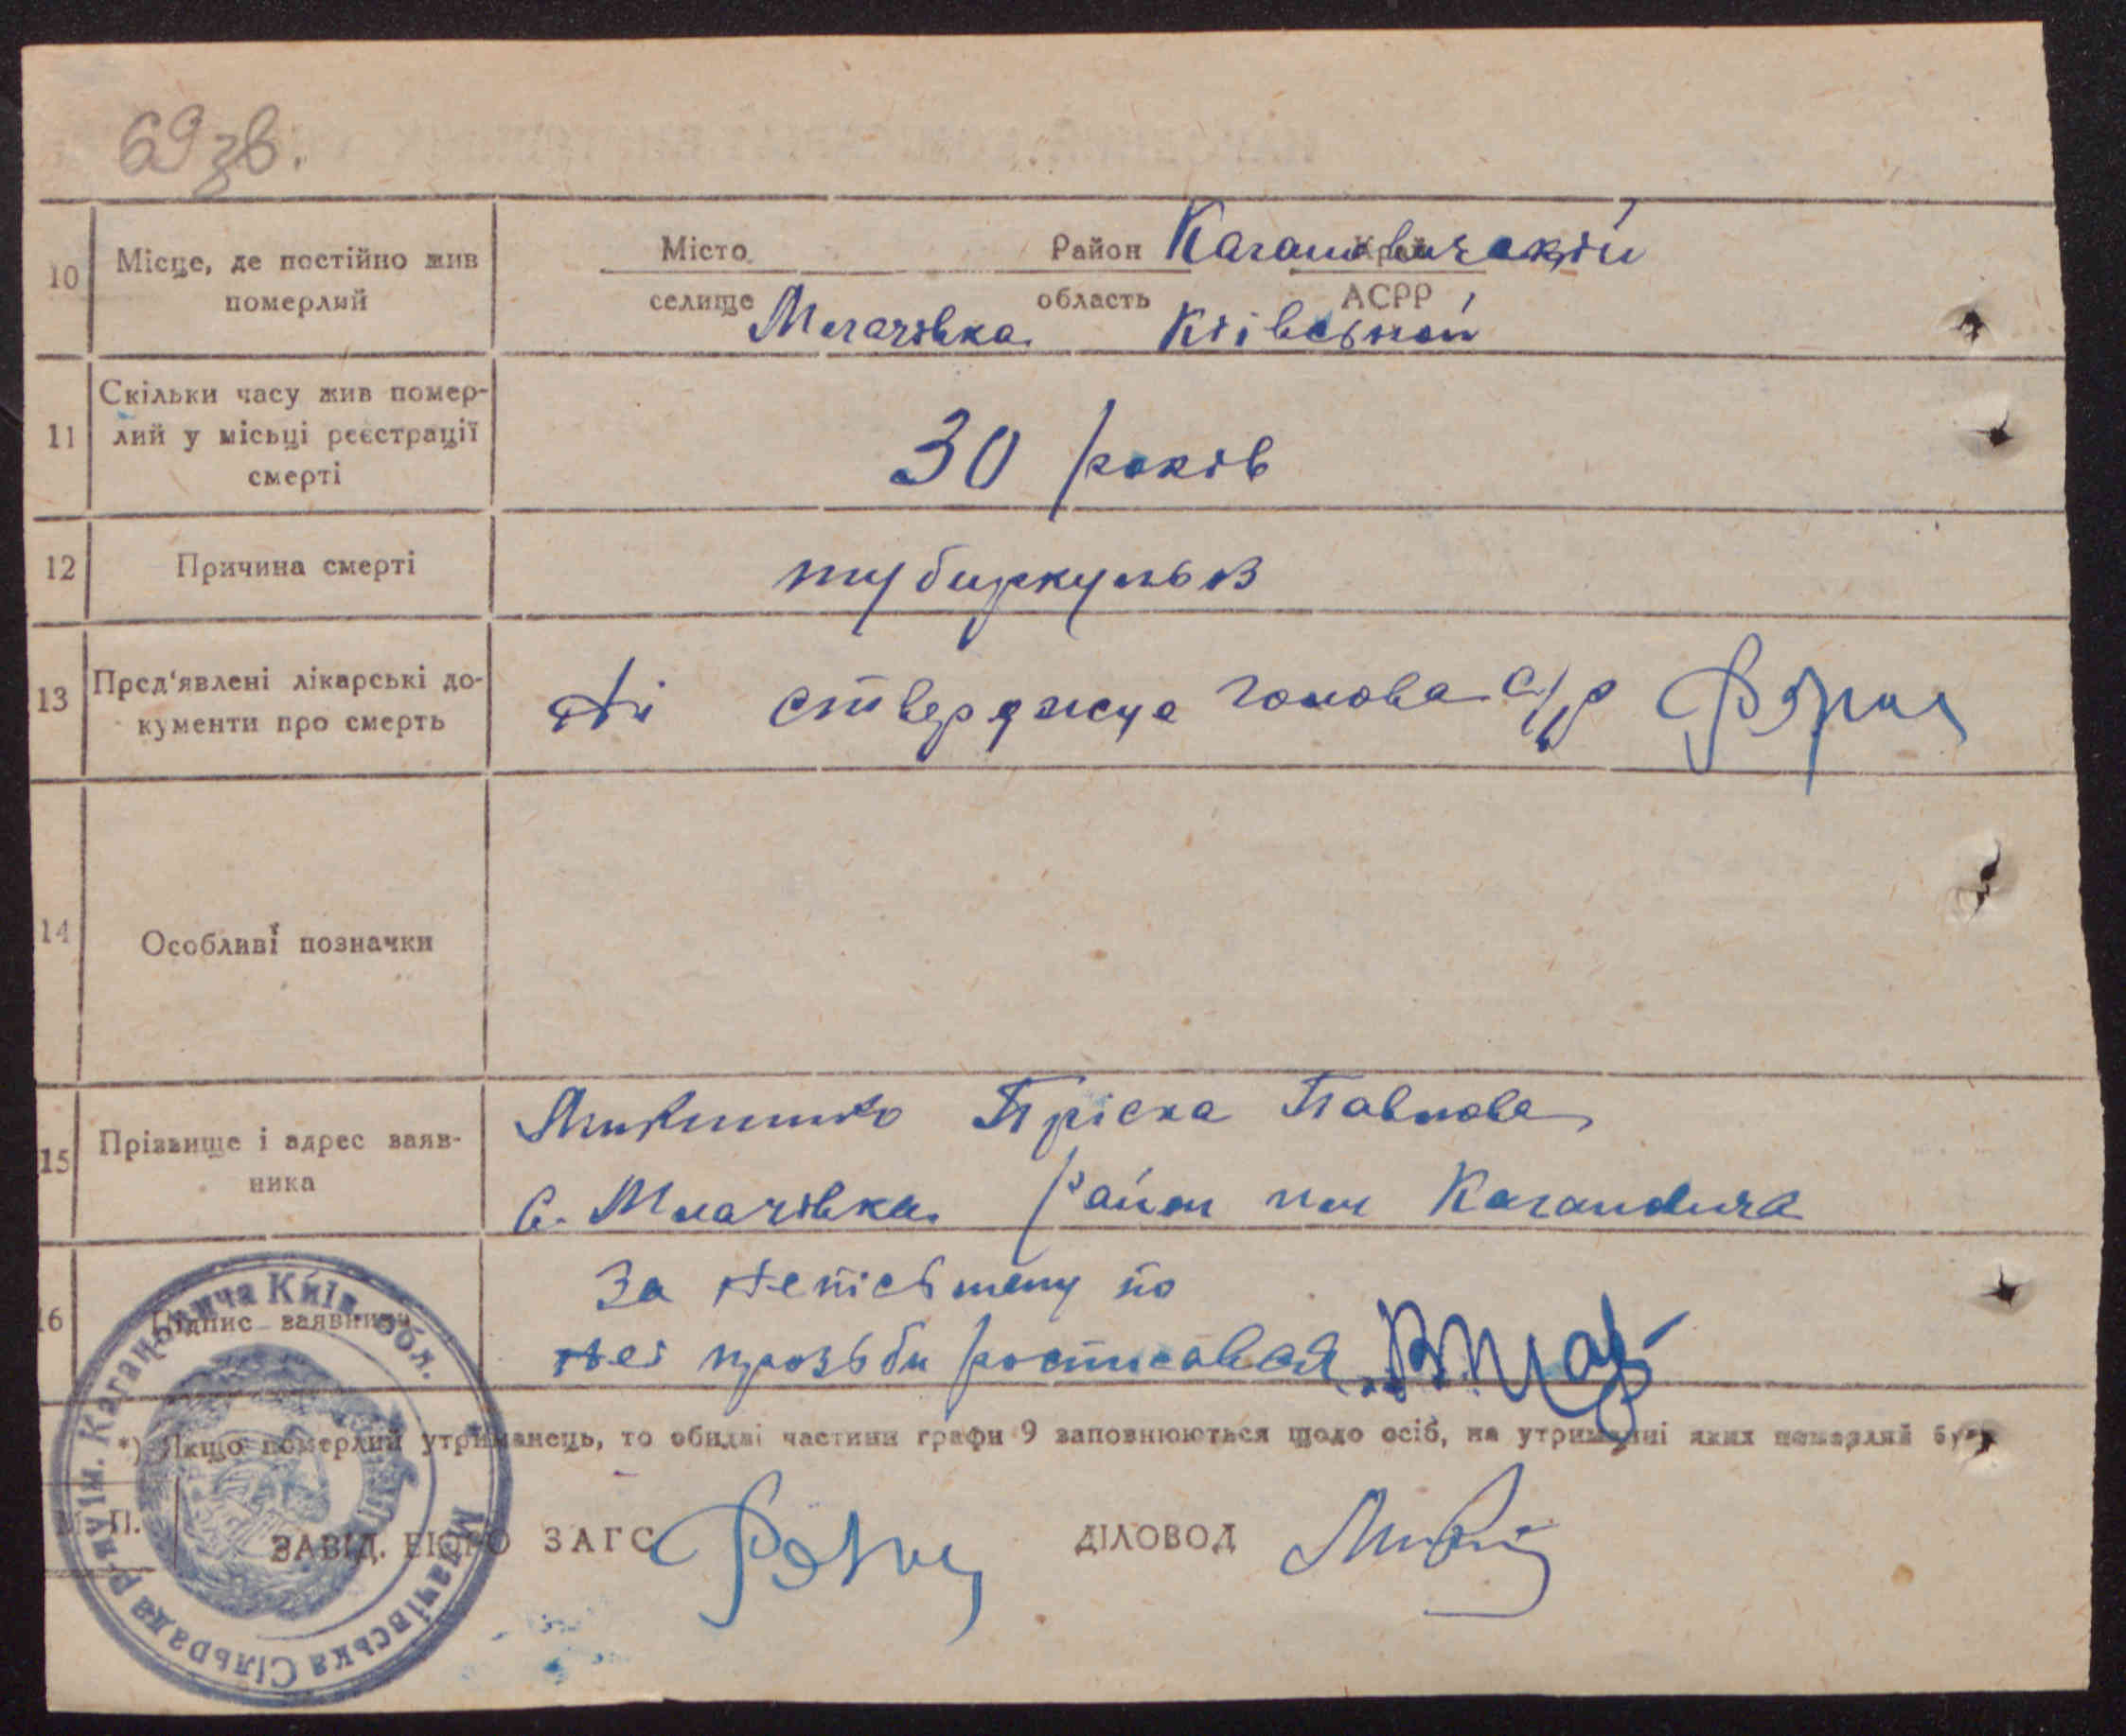 69 зв.
10 Місце, де постійно жив померлий
Місто Район Кагановичский Край
селище Млачівка область Київській АСРР
11 Скільки часу жив помер-
лий у місьці реєстрації
смерті
30 років
12 Причина смерті
тубиркульоз
13 Пред'явлені лікарські до-
кументи про смерть
Ні стверджує голова с/р
14 Особливі позначки
15 Прізвище і адрес заяв-
ника
Пріска Павлова
с. Млачівка район им Кагановича
16 Підпис заявника
За непісьмену по
неї прозьби росписався
*) Якщо померлий утриманець, то обидві частини графи 9 заповнюються щодо осіб, на утриманні яких померлий був
М. П.
ЗАВІД. БЮРО ЗАГС ДІЛОВОД
Млачівська Сільрада Р-ну ім. Кагановича Київ. обл.